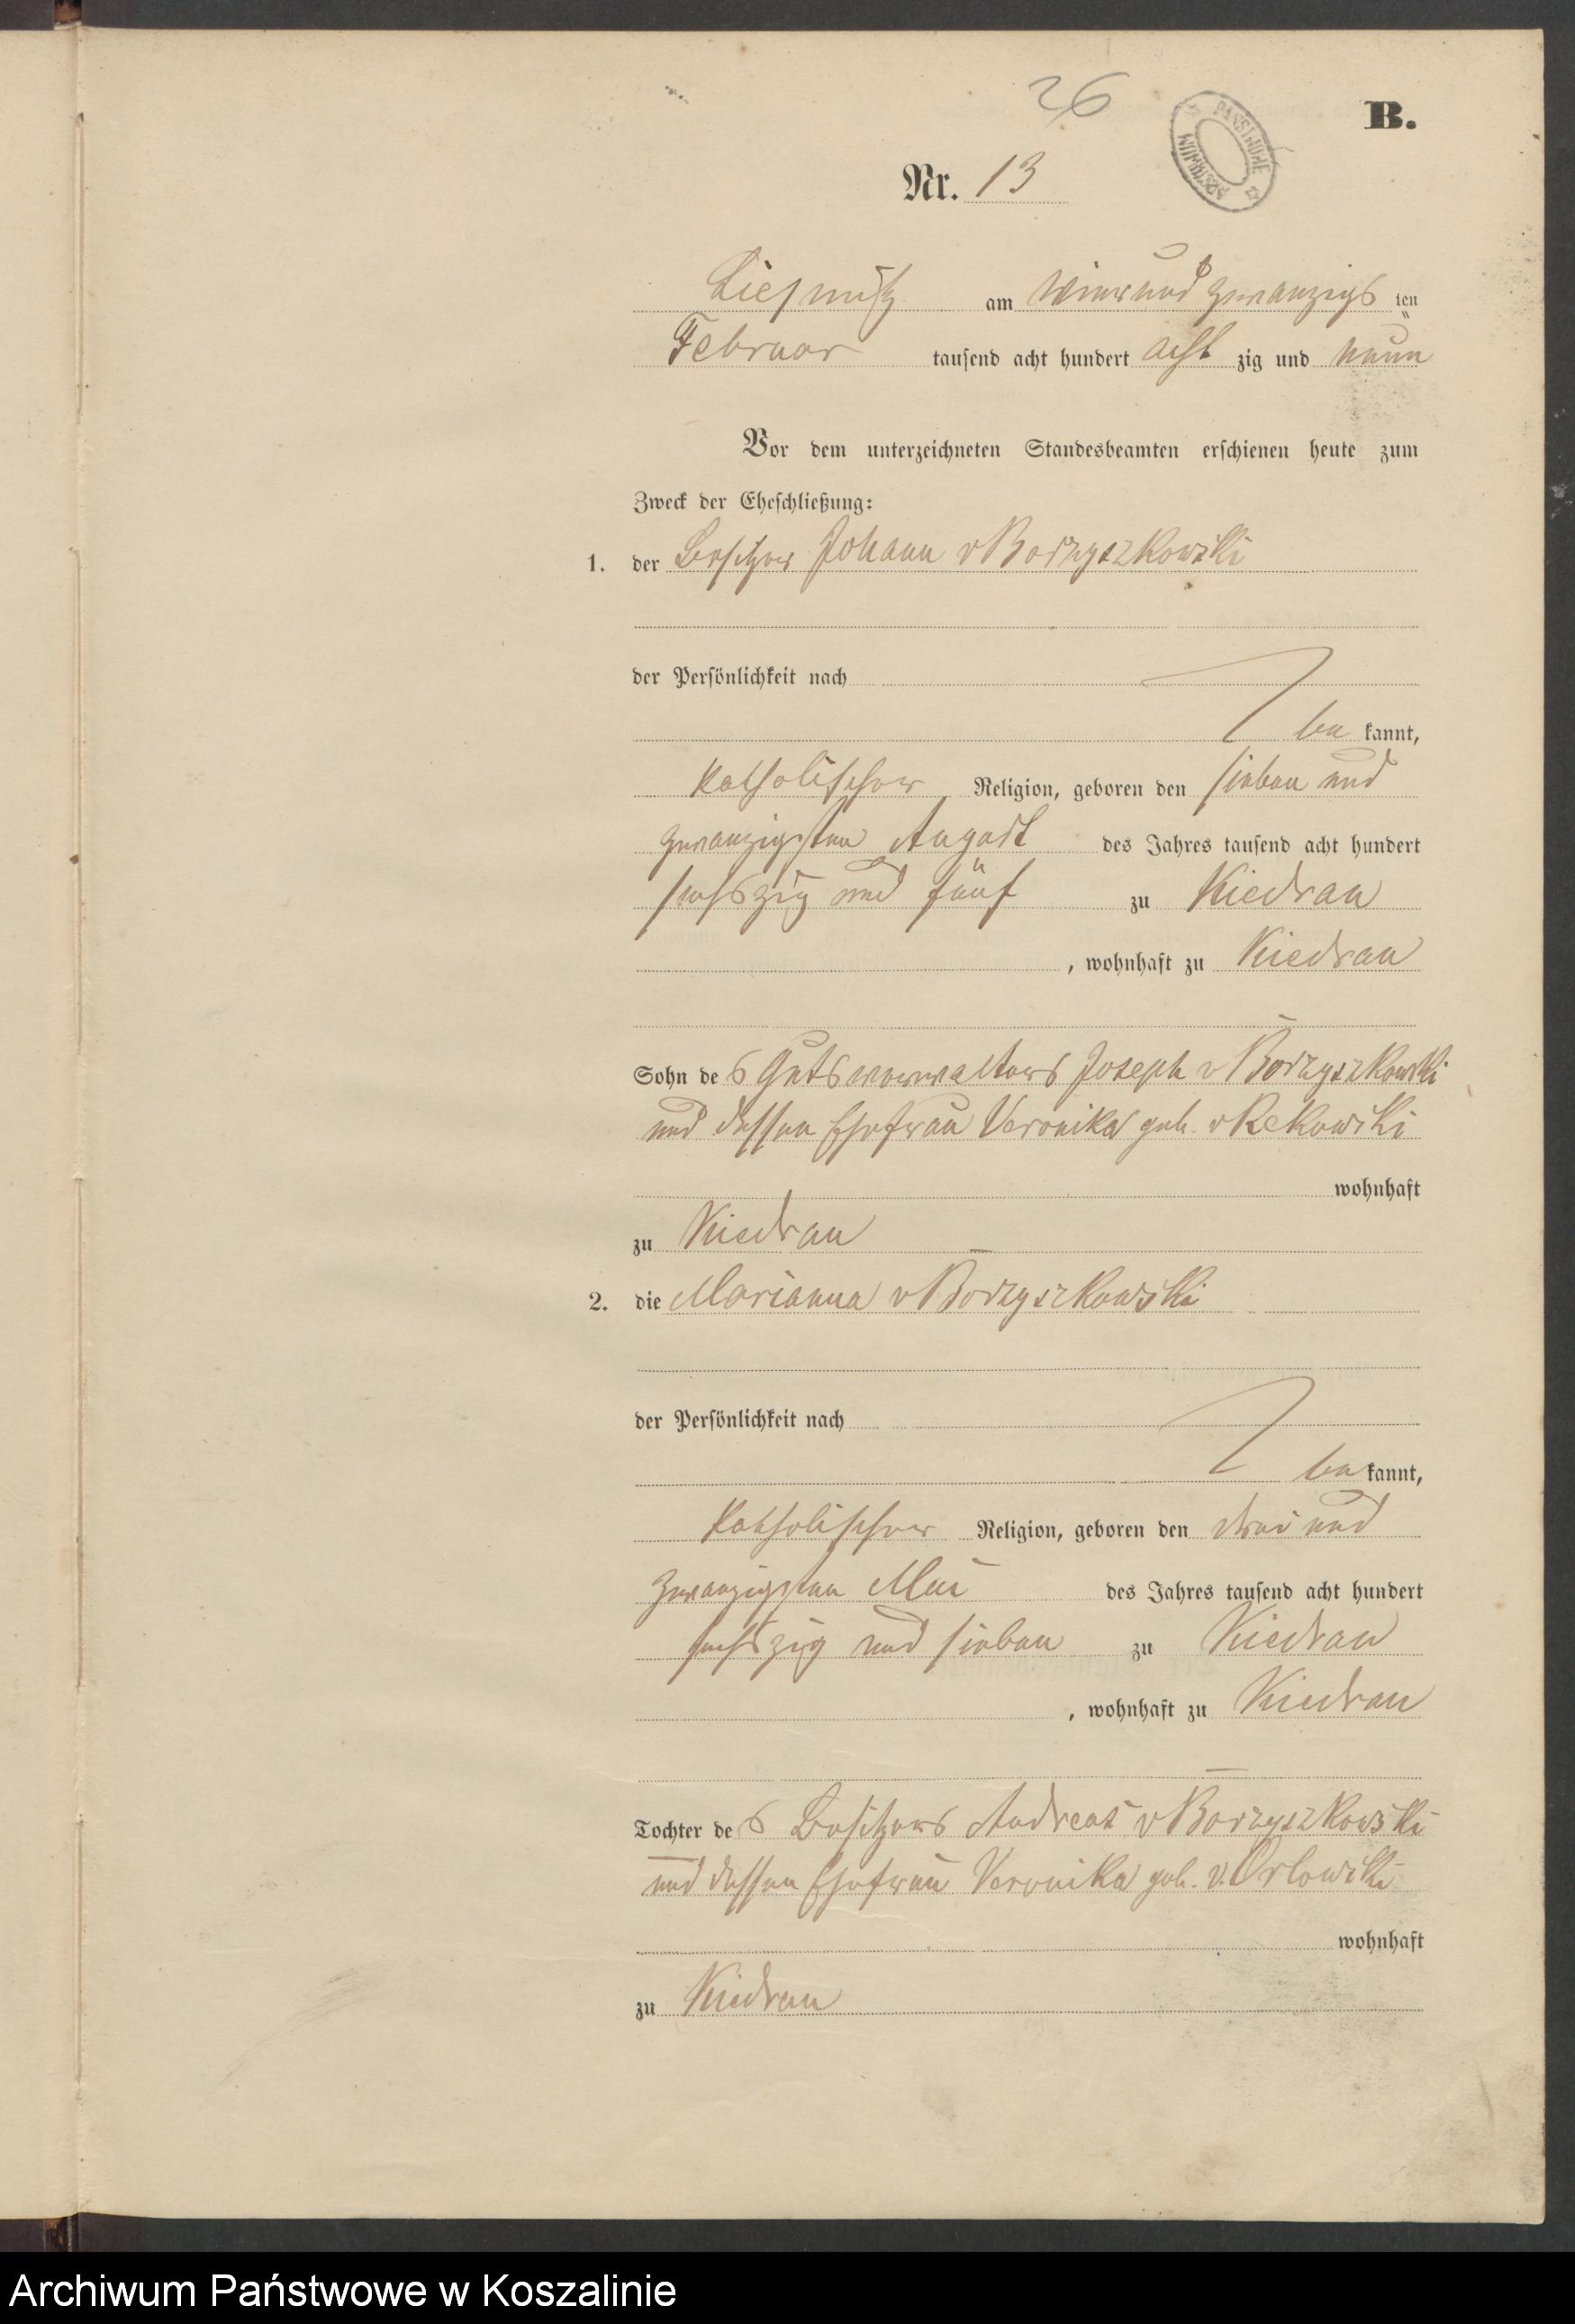 26
B.
PAŃSTWOWE ARCHIWUM
Nr. 13
Liepnitz am vier und zwanzigs ten
Februar tausend acht hundert acht zig und neun
Vor dem unterzeichneten Standesbeamten erschienen heute zum
Zweck der Eheschließung:
1. der Besitzer Johann v Borzyszkowski
der Persönlichkeit nach
be kannt,
katholischer Religion, geboren den sieben und
zwanzigsten August des Jahres tausend acht hundert
sechszig und fünf zu Kiedrau
, wohnhaft zu Kiedrau
Sohn de s Gutsverwalters Joseph v Borzyszkowski
und dessen Ehefrau Veronika geb. v Rekowski
wohnhaft
zu Kiedrau
2. die Marianna v Borzyszkowski
der Persönlichkeit nach
be kannt,
katholischer Religion, geboren den drei und
zwanzigsten Mai des Jahres tausend acht hundert
sechszig und sieben zu Kiedrau
, wohnhaft zu Kiedrau
Tochter de s Besitzers Andreas v Borzyszkowski
und dessen Ehefrau Veronika geb. v. Orlowski
wohnhaft
zu Kiedrau
Archiwum Państwowe w Koszalinie